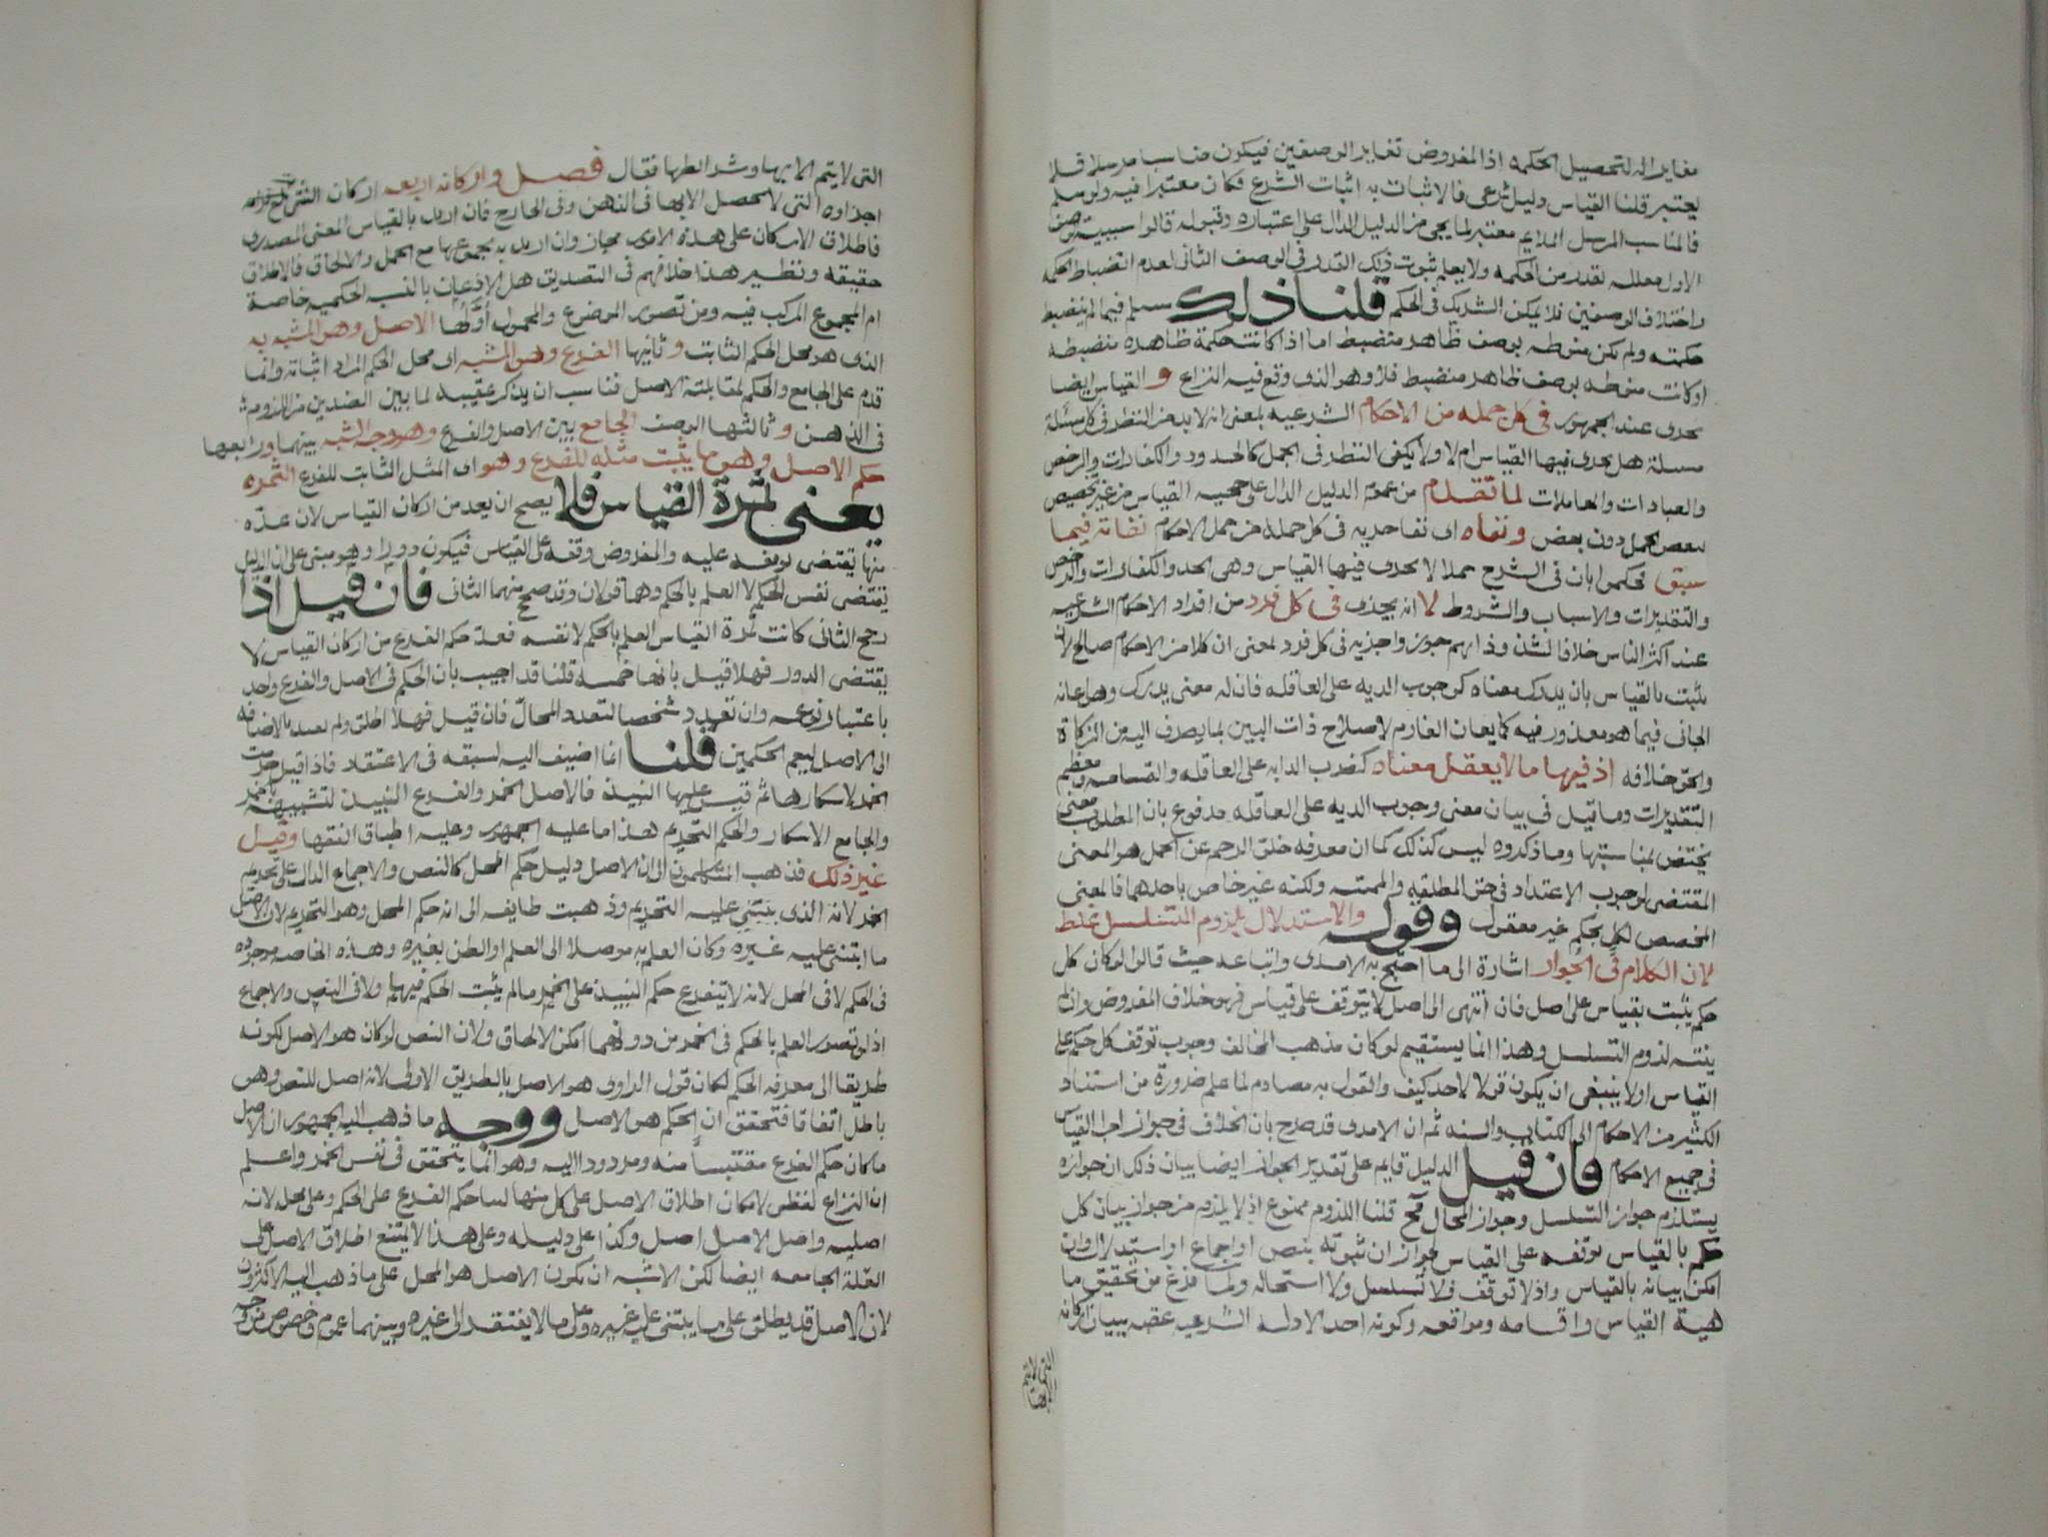 مغايرا له لتحصيل الحكمه اذ المفروض تغاير الوصفين فيكون مناسبا مرسلا فلا
يعتبر قلنا القياس دليل شرعى فالاثبات به اثبات الشرع فكان معتبرا فيه ولو سلم
فالمناسب المرسل الملايم معتبر لما يجى من الدليل الدال على اعتباره وقبوله قالوا سببية
الاول معلله بقدر من الحكمه ولا يعلم ثبوت ذلك القدر فى الوصف الثانى لعدم انضباط الحكمه
واختلاف الوصفين فلا يمكن التشريك فى الحكم قلنا ذلك مسلم فيما لم ينضبط
حكمته ولم تكن منوطه بوصف ظاهر منضبط اما اذا كانت حكمة ظاهره منضبطه
او كانت منوطه بوصف ظاهر منضبط فلا وهو الذى وقع فيه النزاع و القياس ايضا
يجرى عند الجمهور فى كل جمله من الاحكام الشرعيه بمعنى انه لا بد من النظر فى كل مسئلة
مسئلة هل يجرى فيها القياس ام لا ولا يكفى النظر فى الجمل كالحدود والكفارات والرخص
والعبادات والمعاملات لما تقدم من عموم الدليل الدال على حجيه القياس من غير تخصيص
ببعض الجمل دون بعض ونفاه اى نفا جريه فى كل جملة من جمل الاحكام نفاته فيما
سبق فحكموا بان فى الشرع جملا لا يجرى فيها القياس وهى الحد والكفارات والرخص
والتقديرات والاسباب والشروط لا انه يجرى فى كل فرد من افراد الاحكام الشرعيه
عند اكثر الناس خلافا لشذوذ انهم جوزوا جريه فى كل فرد بمعنى ان كلا من الاحكام صالح لان
يثبت بالقياس بان يدرك معناه كوجوب الديه على العاقله فان له معنى يدرك وهو اعانه
الجانى فيما هو معذور فيه كما يعان الغارم لاصلاح ذات البين بما يصرف اليه من الزكاة
والحق خلافه اذ فيها ما لا يعقل معناه كضرب الديه على العاقله والقسامه ومعظم
التقديرات وما قيل فى بيان معنى وجوب الديه على العاقله مدفوع بان المطلوب معنى
يختص بمناسبتها وما ذكروه ليس كذلك كما ان معرفه خلو الرحم عن الحمل هو المعنى
المقتضى لوجوب الاعتداد فى حق المطلقه ولكنه غير خاص باحدهما فالمعنى
المخصص لكل بحكم غير معقول وقوله والاستدلال بلزوم التسلسل غلط
لان الكلام فى الجواز اشارة الى ما احتج به الامدى واتباعه حيث قالوا لو كان كل
حكم يثبت بقياس على اصل فان انتهى الى اصل لا يتوقف على قياس فهو خلاف المفروض وان لم
ينته لزوم التسلسل وهذا انما يستقيم لو كان مذهب المخالف وجوب توقف كل حكم على
القياس اولا ينبغى ان يكون قولا لاحد كيف والقول به مصادم لما علم ضرورة من استناد
الكثير من الاحكام الى الكتاب والسنه ثم ان الامدى قد صرح بان الخلاف فى جواز اجرا القياس
فى جميع الاحكام فان قيل الدليل قايم على تقدير الجواز ايضا بيان ذلك ان جوازه
يستلزم جواز التسلسل وجواز المحال قلنا اللزوم ممنوع اذ لا يلزم من جواز بيان كل
حكم بالقياس توقفه على القياس لجواز ان ثبوته بنص او اجماع او استدلال وان
امكن بيانه بالقياس واذ لا توقف فلا تسلسل ولا استحاله ولما فرغ من تحقيق ما
هية القياس واقسامه ومواقعه وكونه احد الادله الشرعيه عقبه ببيان اركانه
التى لا يتم
الا بها
التى لا يتم الا بها وشرائطها فقال فصل واركانه اربعه اركان الشى
اجزاوه التى لا يحصل الا بها فى الذهن وفى الخارج فان اريد بالقياس المعنى المصدرى
فاطلاق الاركان على هذه الامور مجاز وان اريد به مجموعها مع الحمل والالحاق فالاطلاق
حقيقه ونظير هذا خلافهم فى التصديق هل الاذعان بالنسبه الحكميه خاصة
ام المجموع المركب فيه ومن تصور الموضوع والمحمول اولها الاصل وهو المشبه به
الذى هو محل الحكم الثابت وثانيها الفرع وهو المشبه اى محل الحكم المراد اثباته وانما
قدم على الجامع والحكم لمقابلته الاصل فناسب ان يذكر عقيبه لما بين الضدين من اللزوم
فى الذهن وثالثها الوصف الجامع بين الاصل والفرع وهو وجه الشبه بينهما ورابعها
حكم الاصل وهو ما يثبت مثله للفرع وهو اى المثل الثابت للفرع الثمره
يعنى ثمرة القياس فلا يصح ان يعد من اركان القياس لان عده
منها يقتضى توقفه عليه والمفروض وقفه على القياس فيكون دورا وهو مبنى على ان الدليل
يقتضى نفس الحكم لا العلم بالحكم وهما قولان وقد صحح منهما الثانى فان قيل اذا
رجح الثانى كانت ثمرة القياس العلم بالحكم لا نفسه فعد حكم الفرع من اركان القياس لا
يقتضى الدور فهلا قيل بانها خمسه قلنا قد اجيب بان الحكم فى الاصل والفرع واحد
باعتبار نوعه وان تعدد شخصا لتعدد المحال فان قيل فهلا اطلق ولم يقيد بالاضافه
الى الاصل ليعم الحكمين قلنا انما اضيف اليه لسبقه فى الاعتقاد فاذا قيل حرمت
الخمر لاسكارها ثم قيس عليها النبيذ فالاصل الخمر والفرع النبيذ لتشبيهه بالخمر
والجامع الاسكار والحكم التحريم هذا ما عليه الجمهور وعليه اطباق الفقها وقيل
غير ذلك فذهب المتكلمون الى ان الاصل دليل حكم المحل كالنص والاجماع الدال على تحريم
الخمر لانه الذى ينبنى عليه التحريم وذهبت طايفه الى انه حكم المحل وهو التحريم لان الاصل
ما ابتنى عليه غيره وكان العلم به موصلا الى العلم او الظن بغيره وهذه الخاصه موجوده
فى الحكم لا فى المحل لانه لا يتفرع حكم النبيذ على الخمر ما لم يثبت الحكم فيها ولا فى النص والاجماع
اذ لو تصور العلم بالحكم فى الخمر من دونهما امكن الالحاق ولان النص لو كان هو الاصل لكونه
طريقا الى معرفه الحكم لكان قول الراوى هو الاصل بالطريق الاولى لانه اصل للنص وهو
باطل اتفاقا فتحقق ان الحكم هو الاصل ووجه ما ذهب اليه الجمهور ان الاصل
ما كان حكم الفرع مقتبسا منه ومردودا اليه وهو انما يتحقق فى نفس الخمر واعلم
ان النزاع لفظى لامكان اطلاق الاصل على كل منها لبنا حكم الفرع على الحكم وعلى محله لانه
اصليه واصل الاصل اصل وكذا على دليله وعلى هذا لا يمتنع اطلاق الاصل على
العلة الجامعه ايضا لكن الاشبه ان يكون الاصل هو المحل على ما ذهب اليه الاكثرون
لان الاصل قد يطلق على ما يبتنى عليه غيره وعلى ما لا يفتقر الى غيره وبينهما عموم وخصوص من وجه